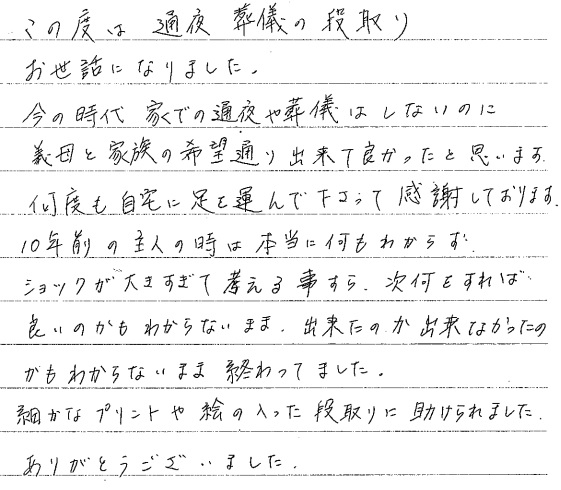 この度は 通夜 葬儀の段取り
お世話になりました。
今の時代 家での通夜や葬儀はしないのに
義母と家族の希望通り出来て良かったと思います
何度も自宅に足を運んで下さって感謝しております.
10年前の主人の時は本当に何もわからず
ショックが大きすぎて考える事すら、次何をすれば
良いのかもわからないまま、出来たのか出来なかったの
かもわからないまま終わってました。
細かなプリントや絵の入った段取りに助けられました.
ありがとうございました.